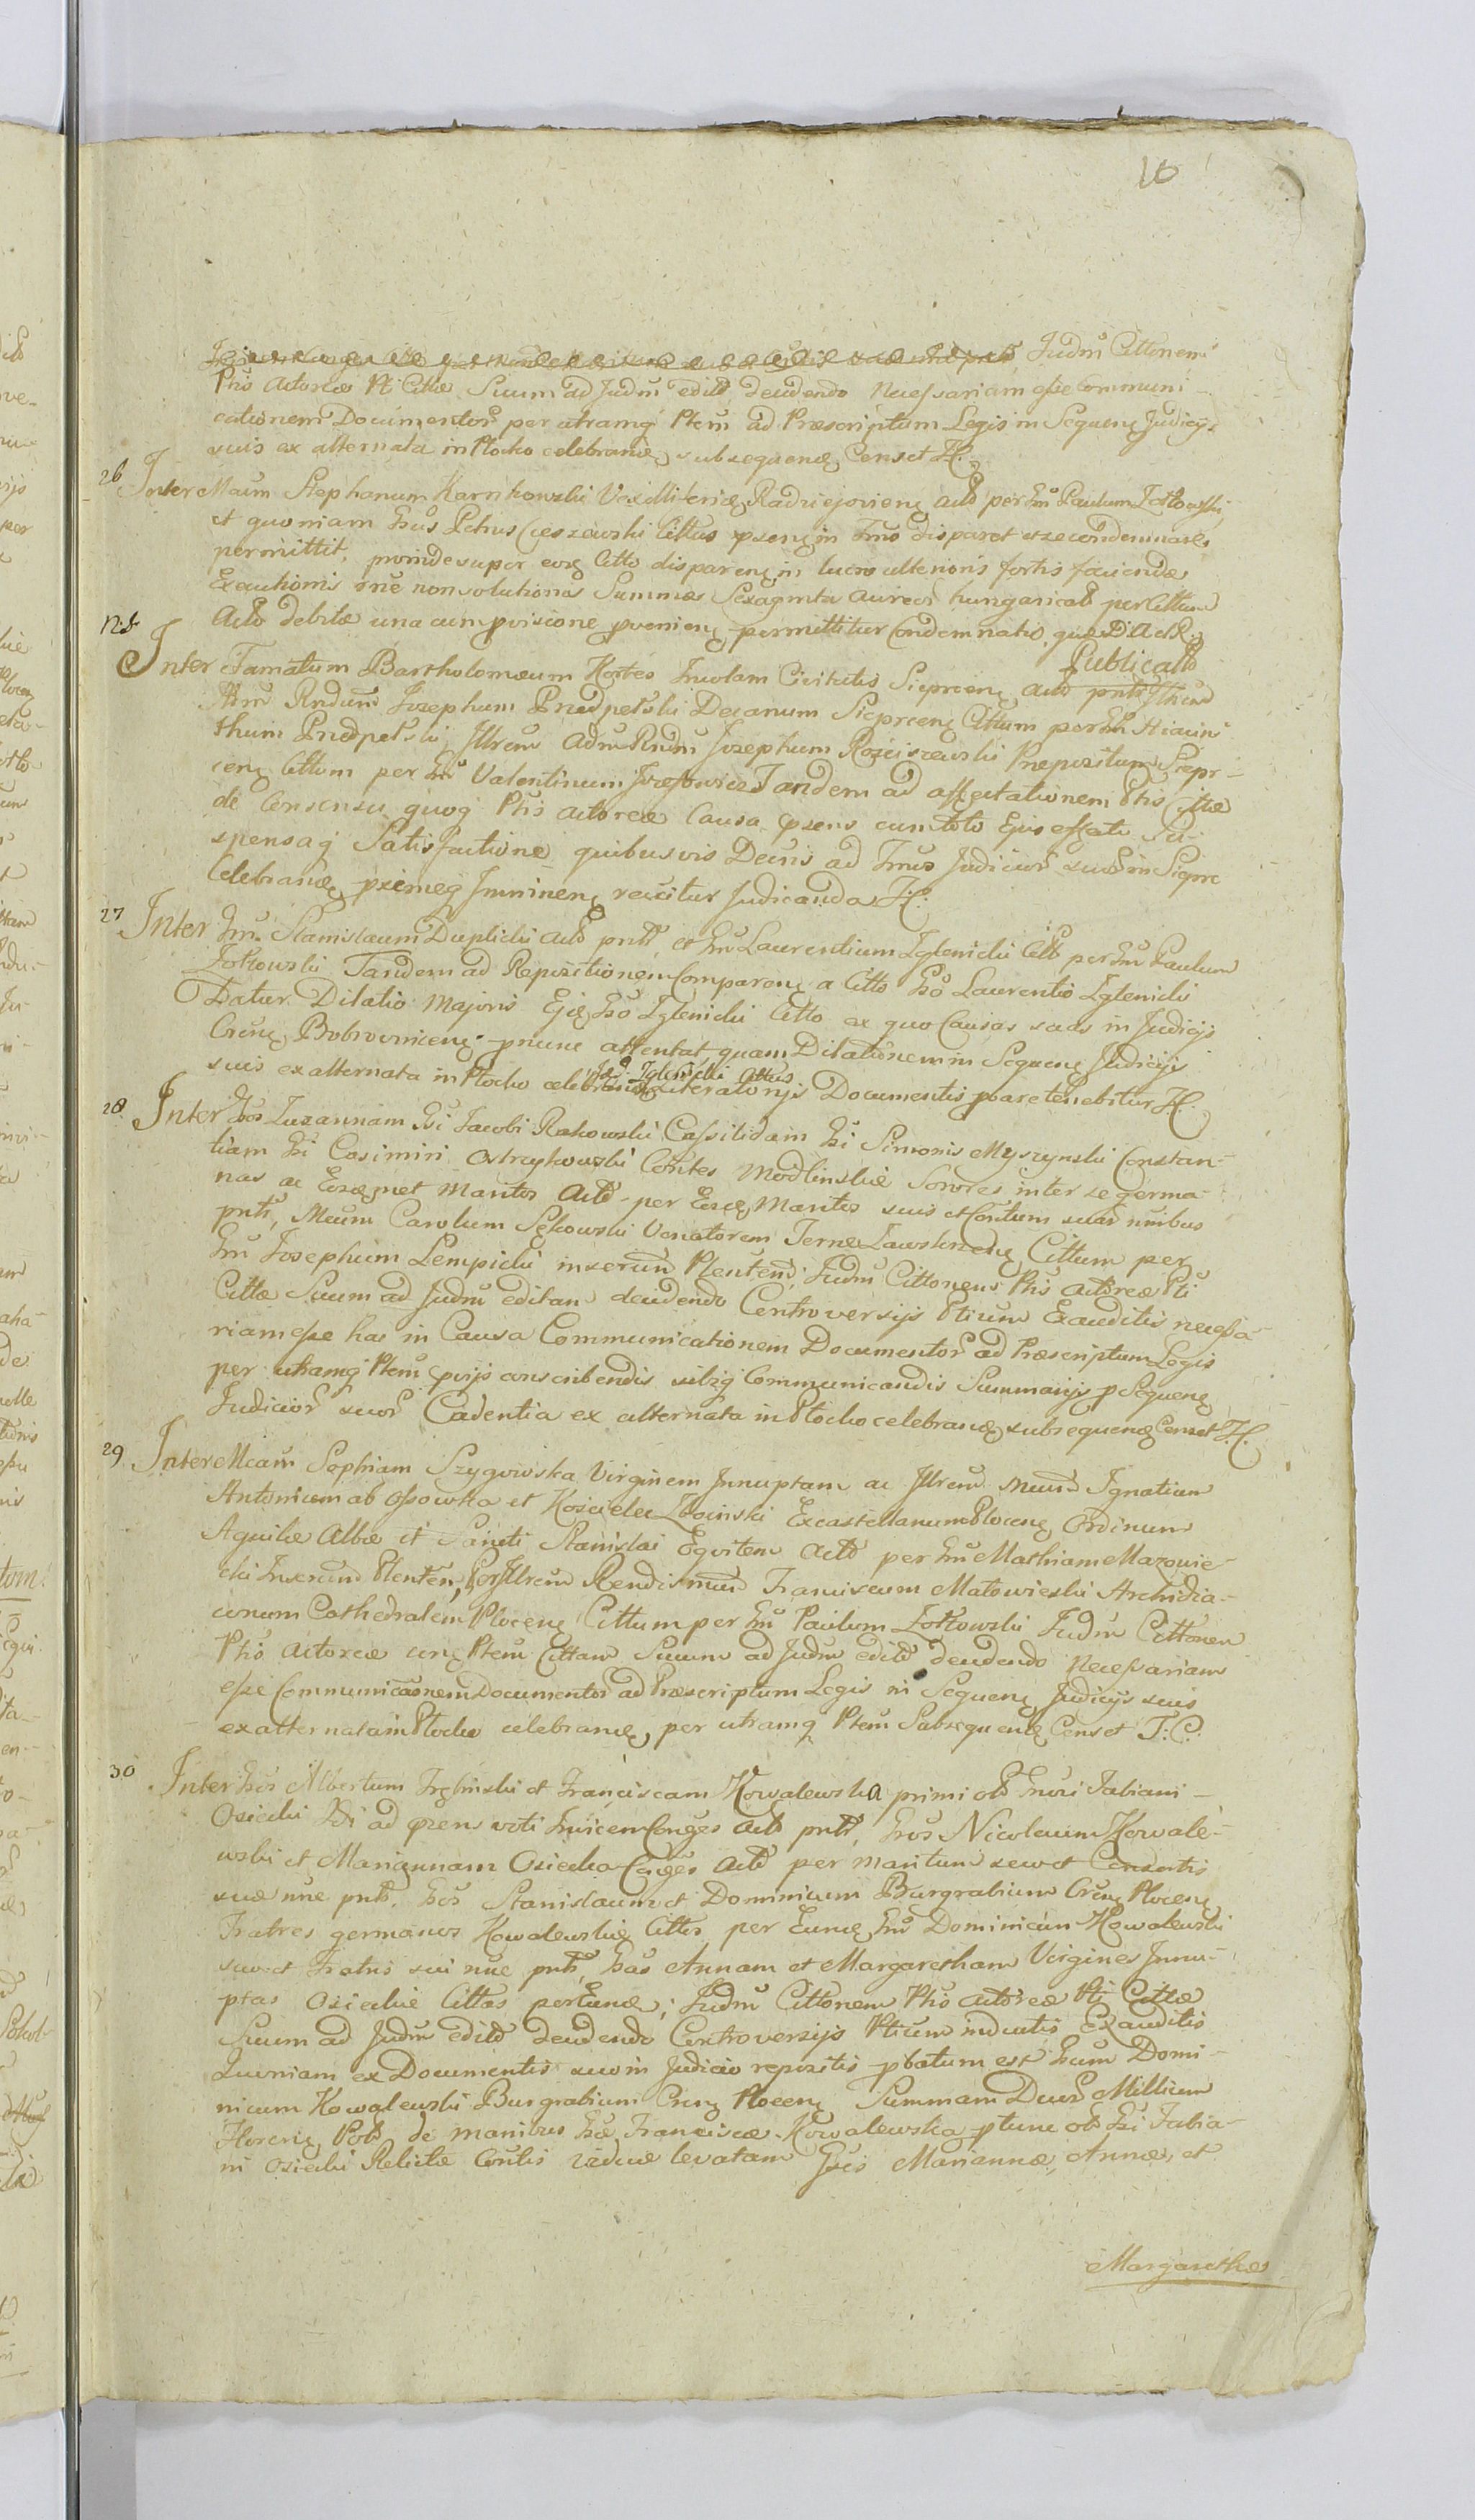 16
Judm Cittonem
Ptis Actoreæ Pti Cittæ Suum ad Judm edito decidendo Necessariam esse Communi-
cationem Documentor per utramq Ptem ad Præscriptum Legis in Sequen Judicijs
suis ex alternata in Plocko celebran subsequen Censet H.
26 Inter Mcum Stephanum Karnkowski Vexilliferid Radziejovien Act per Gnm Paulum Zołtowski
et quoniam Gnus Petrus Cieszewski Cittus præns in Tmo disparet seze condemnare
permittit, proinde super eog Citto disparen in lucro ulterioris fortis faciendæ
Executionis rne non solutionis Summæ Sexaginta aureor hungarical per Cittum
Act debitæ una cum provisione provenien permittitur Condemnatio, quæ D. Ad R.
Publicatio
Ndt Inter Famatum Bartholomæum Kortes Incolam Civitatis Sieprcen Act pntr Illrem
Adm Rndum Josephum Przedpełski Decanum Sieprcen Cittum per Gn Hiacin-
thum Przedpełski, Illrem Adm Rndm Josephum Rościszewski Præpositum Siepr-
cen Cittum per Gn Valentinum Jozefowicz Tandem ad affectationem Ptis Cittæ
de Consensu quoq Ptis Actoreæ Causa præsens cum toto Ejus effectu Su-
spensaq Satisfactione quibusvis Decris ad Tmos Judicior suor in Sieprc
Celebran pximeq Imminen reiicitur Judicanda H.
27 Inter Gnm Stanislaum Duplicki Act pntr et Gnm Laurentium Zglenicki Citt per Gnm Paulum
Zołtowski Tandem ad Repositionem Comparen a Citto Gso Laurentio Zglenicki
Datur Dilatio Majoris Ejq Gso Zglenicki Citto ex quo Causas suas in Judicijs
Crens Bobrovnicen pnunc attentat, quam Dilationem in Sequen Judicijs
Isd. Zglenicki Cittus
suis ex alternata in Plocko celebran Literatorijs Documentis pbare tenebitur H.
28 Inter Gsos Zuzannam Gsi Jacobi Rakowski Cassilidam Gsi Simonis Myszynski Constan-
tiam Gsi Casimiri Ostrzykowski Contes Modlinskie Sorores inter se germa-
nas ac Eozqmet Maritos Act per Eozq Maritos suos et Contum suar nnibus
pntr, Mcum Carolum Sękowski Venatorem Terræ Zawskrzen Cittum per
Gnm Josephum Lempicki inserum Plenten, Judm Cittonem Ptis Actoreæ Pti
Cittæ Suum ad Judm editam decidendo Controversijs Ptium Exauditis necessa-
riam esse hac in Causa Communicationem Documentor ad Præscriptum Legis
per utramq Ptem pvijs conscribendis sibiq Communicandis Summarijs p Sequen
Judicior suor Cadentia ex alternata in Plocko celebran subsequen Censet H.
29 Inter Mcam Sophiam Szygowska Virginem Innuptam ac Illrem Mcum Ignatium
Antonium ab Ossowka et Kościelec Zboinski Excastellanum Plocen Ordinum
Aquilæ Albæ et Sancti Stanislai Equitem Act per Gnm Mathiam Mazowie-
cki Inserum Plenten, Perillrem Rendismum Franciscum Matowieski Archidia-
conum Cathedralem Plocen Cittum per Gnm Paulum Zołtowski Judm Cittonem
Ptis Actoreæ conq Ptem Cittam Suum ad Judm edito decidendo Necessariam
esse Communicaonem Documentor ad Præscriptum Legis in Sequen Judicijs suis
ex alternata in Plocko celebran, per utramq Ptem Subsequen Censet T. C.
30 Inter Gsos Albertum Trębinski et Franciscam Kowalewska primi olt Gnosi Fabiani
Osiecki Gsi ad præsens voti Invicem Conges Act pntr, Gnos Nicolaum Kowale-
wski et Mariannam Osiecka Conges Act per Maritum seu et Consortis
suæ nne pntr, Gsos Stanislaum et Dominicum Burgrabium Cren Plocen
Fratres germanos Kowalewskie Cittos per Eumq Gnm Dominicum Kowalewski
suo et Fratris sui nne pntr, Gsas Annam et Margaretham Virgines Innu-
ptas Osieckie Cittas per Eunq; Judm Cittonem Ptis Actoreæ Pti Cittæ
Suum ad Judm edito decidendo Controversijs Ptium inductis Exauditis
Quoniam ex Documentis suo in Judicio repositis pbatum est Gsum Domi-
nicum Kowalewski Burgrabium Cren Plocen Summam Duor Millium
Floreniq Polo de manibus Gsæ Franciscæ Kowalewska ptunc olt Gsi Fabia-
ni Osiecki Relictæ Contis viduæ levatam Gsis Mariannæ, Annæ, et
Margarethæ